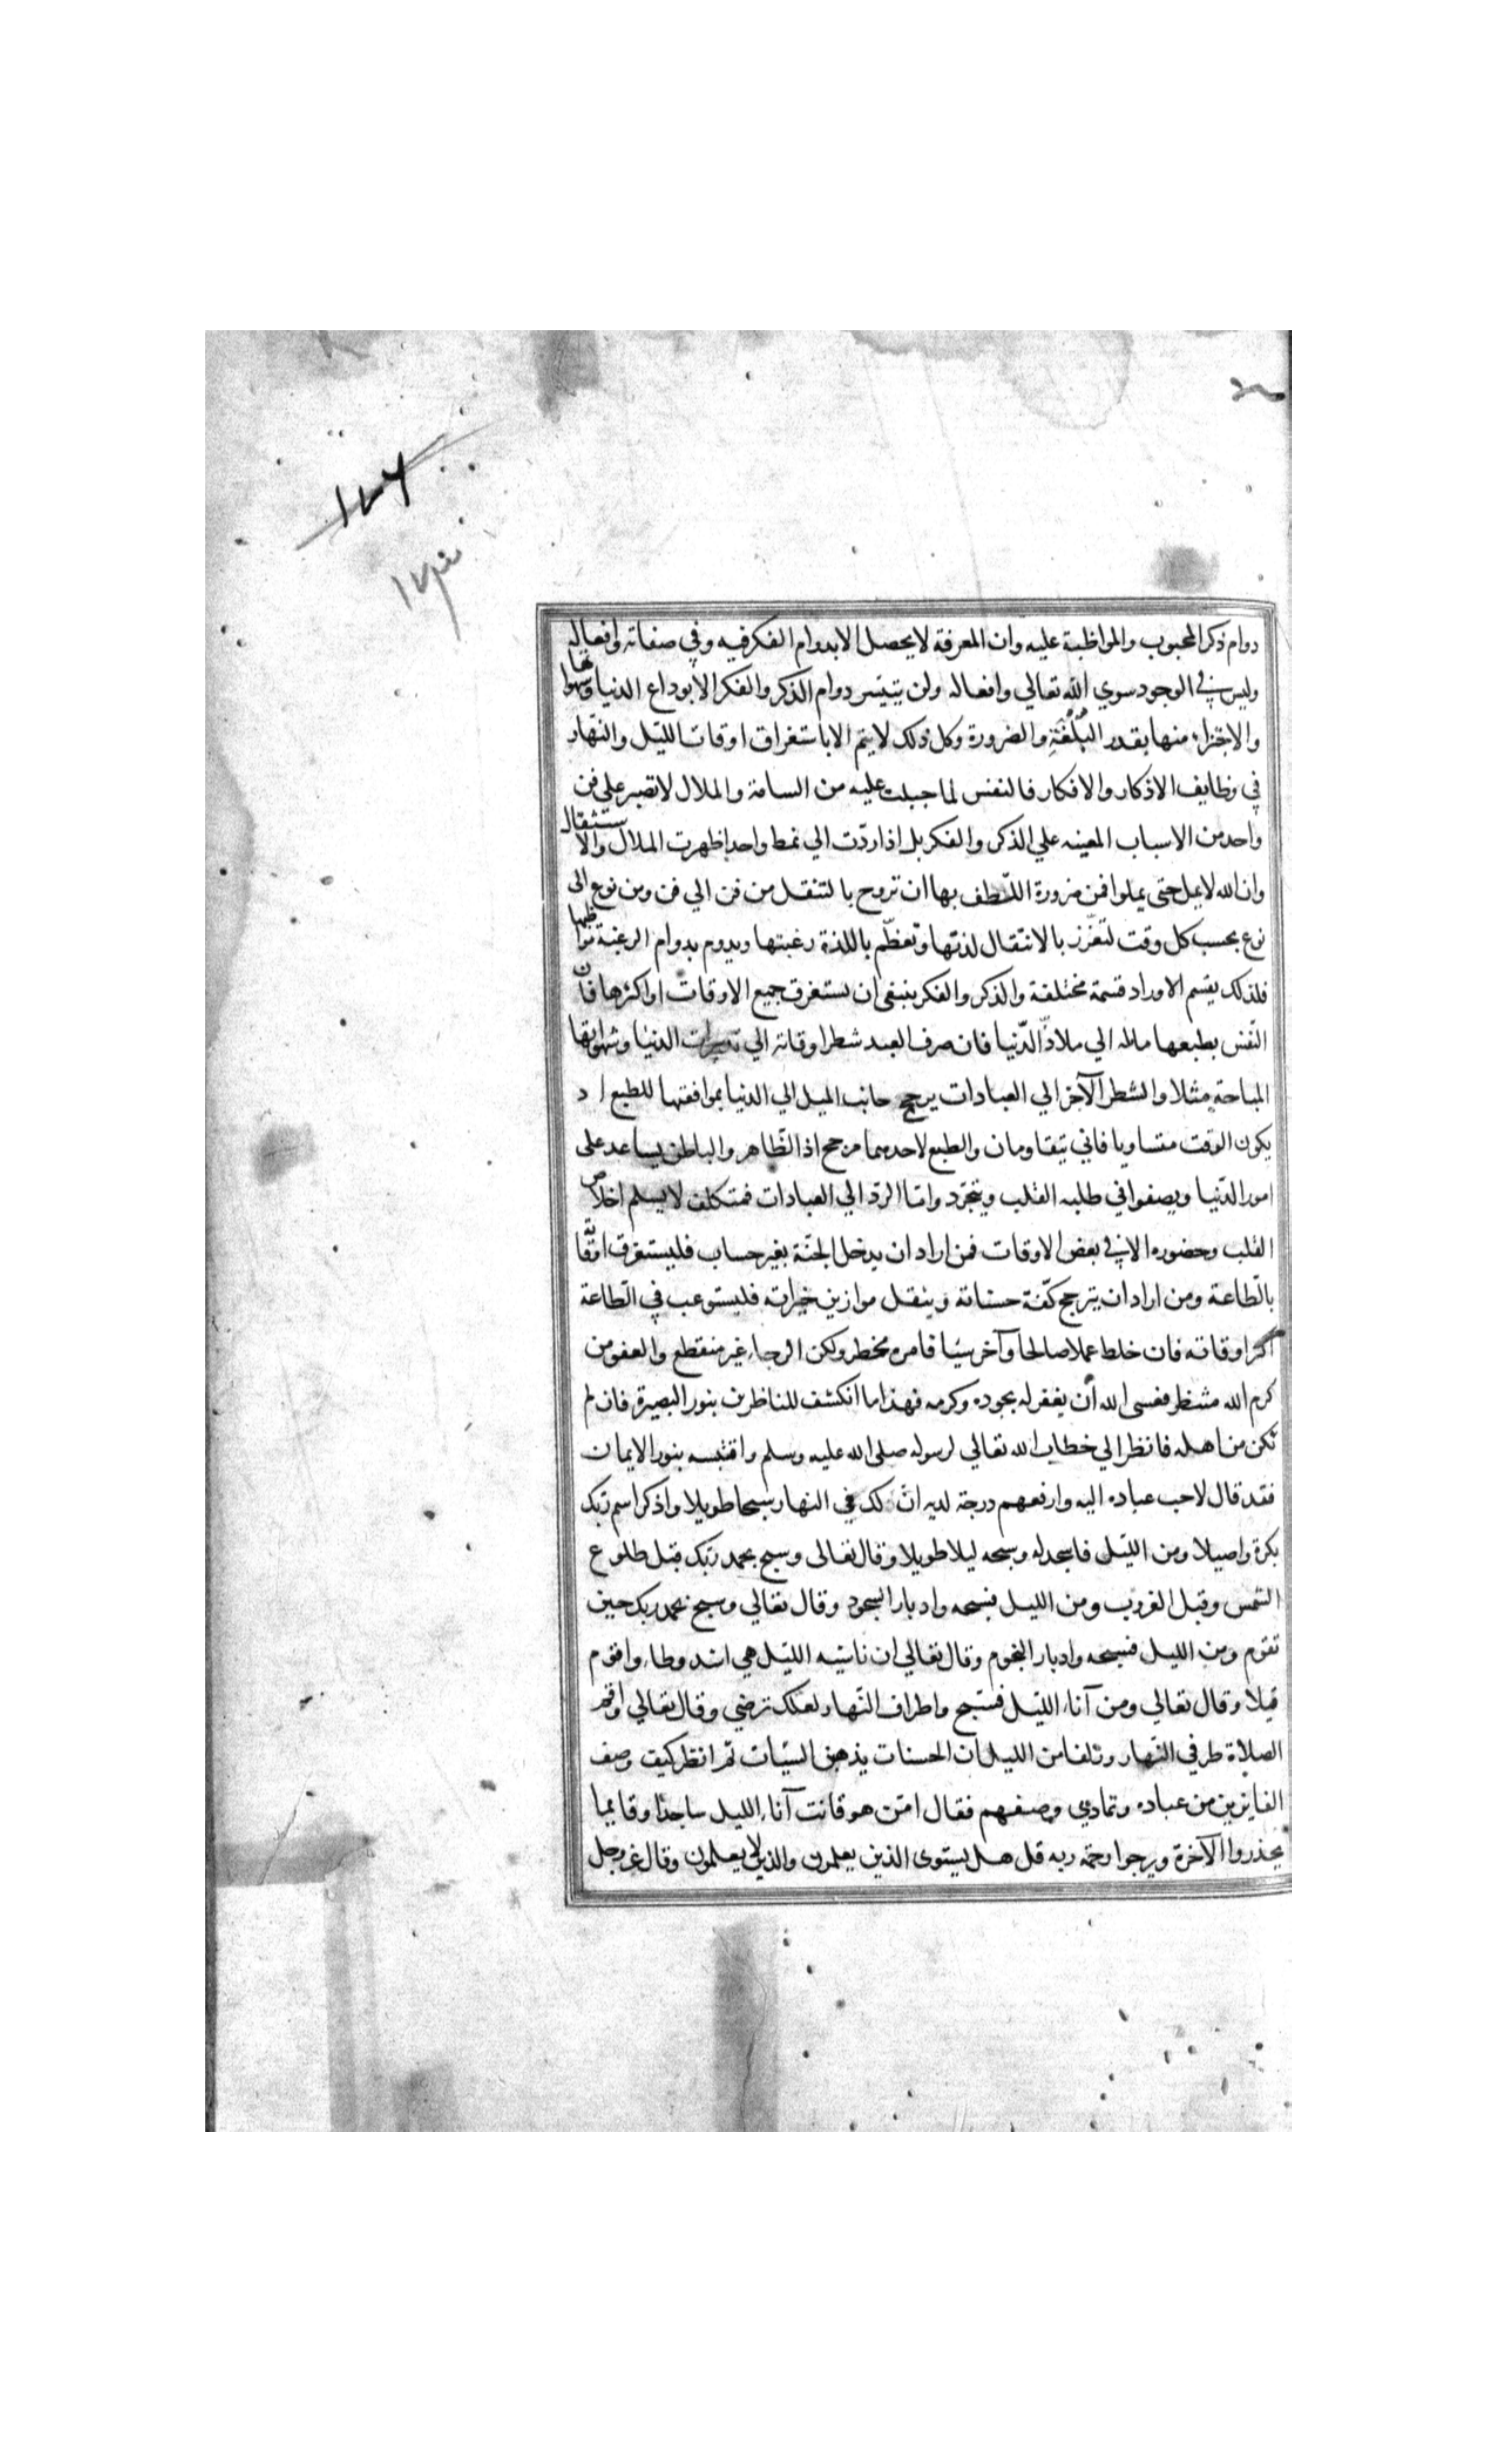 ١٢٦
دوام ذكر المحبوب والمواظبة عليه وان المعرفة لا يحصل الا بدوام الفكر فيه وفي صفاته وافعاله
وليس في الوجود سوي الله تعالي وافعاله ولن يتيسر دوام الذكر والفكر الا بوداع الدنيا وشهواتها
والاجتزاء منها بقدر البُلْغَةِ والضرورة وكل ذلك لا يتم الا باستغراق اوقات الليل والنهار
في وظايف الاذكار والافكار فالنفس لما جبلت عليه من السامة والملال لا تصبر علي فن
واحد من الاسباب المعينه علي الذكر والفكر بل اذا ردّت الي نمط واحد اظهرت الملال والاستثقال
وان الله لا يمل حتى يملوا فمن ضرورة اللّطف بها ان تروح بالتنقل من فن الي فن ومن نوع الى
نوع بحسب كل وقت لتغزر بالانتقال لذتها وتعظّم باللذة رغبتها ويدوم بدوام الرغبة مواظبتها
فلذلك يقسم الاوراد قسمة مختلفة والذكر والفكر ينبغي ان يستغرق جميع الاوقات او اكثرها فان
النّفس بطبعها مائله الي ملاذّ الدّنيا فان صرف العبد شطر اوقاته الي تدبيرات الدنيا وشهواتها
المباحة مثلا والشطر الآخر الي العبادات يرجح جانب الميل الي الدنيا بموافقتها للطبع اذ
يكون الوقت متساويا فاني يتقاومان والطبع لاحدهما مرجح اذ الظّاهر والباطن يساعد على
امور الدّنيا ويصفوا في طلبه القلب ويتجرّد وامّا الردّ الي العبادات فمتكلف لا يسلم اخلاص
القلب وحضوره الا في بعض الاوقات فمن اراد ان يدخل الجنّة بغير حساب فليستغرق اوقاته
بالطّاعة ومن اراد ان يترجح كفّة حسناته ويثقل موازين خيراته فليستوعب في الطّاعة
اكثر اوقاته فان خلط عملا صالحا وآخر سيّيا فامره مخطر ولكن الرجاء غير منقطع والعفو من
كرم الله منتظر فعسى الله أن يغفر له بجوده وكرمه فهذا ما انكشف للناظرين بنور البصيرة فان لم
تكن من اهله فانظر الي خطاب الله تعالي لرسوله صلى الله عليه وسلم واقتبسه بنور الايمان
فقد قال لاحب عباده اليه وارفعهم درجة لديه انّ لك في النهار سبحا طويلا واذكر اسم ربّك
بكرة واصيلا ومن اللّيل فاسجد له وسبحه ليلا طويلا وقال تعالى وسبح بحمد ربّك قبل طلوع
الشّمس وقبل الغروب ومن الليل فسبحه وادبار السجود وقال تعالي وسبح بحمد ربك حين
تقوم ومن الليل فسبحه وادبار النجوم وقال تعالي ان ناشيه اللّيل هي اشد وطاء واقوم
قيلا وقال تعالي ومن آناء اللّيل فسبّح واطراف النّهار لعلك ترضي وقال تعالي واقم
الصلاة طرفي النّهار وزلفا من الليل ان الحسنات يذهبن السيّات ثم انظر كيف وصف
الفايزين من عباده وتمادي وصفهم فقال امّن هو قانت آناء الليل ساجدا وقايما
يحذروا الآخرة ويرجوا رحمة ربه قل هل يستوى الذين يعلمون والذين لا يعلمون وقال عز وجل